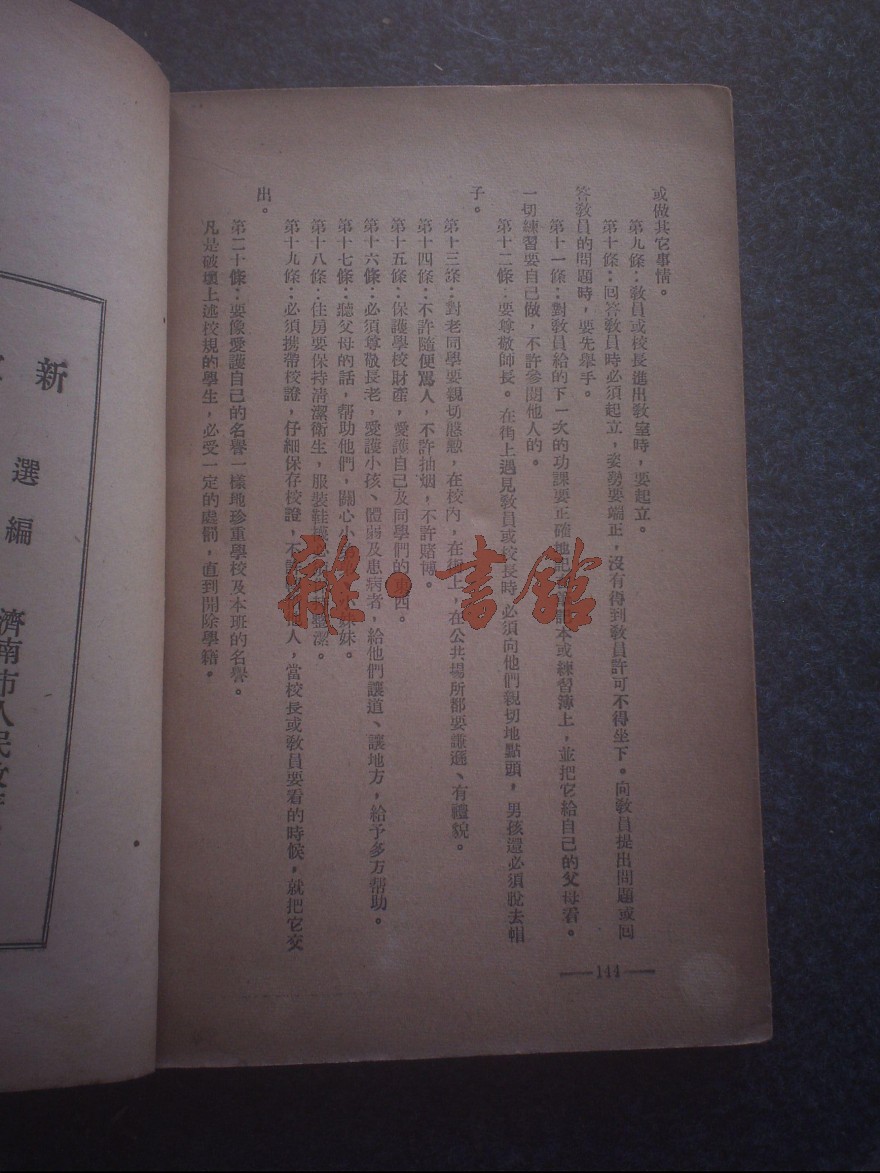 或做其它事情。
第九條：教員或校長進出教室時，要起立。
第十條：回答教員時必須起立，姿勢要端正，沒有得到教員許可不得坐下。向教員提出問題或回
答教員的問題時，要先舉手。
第十一條：對教員給的下一次的功課要正確地記 本或練習簿上，並把它給自己的父母看。
一切練習要自己做，不許參閱他人的。
第十二條：要尊敬師長。在街上遇見教員或校長時，必須向他們親切地點頭，男孩還必須脫去帽
子。
第十三條：對老同學要親切慇懃，在校內，在街上，在公共場所都要謙遜、有禮貌。
第十四條：不許隨便罵人，不許抽烟，不許賭博。
第十五條：保護學校財產，愛護自己及同學們的東西。
第十六條：必須尊敬長老，愛護小孩、體弱及患病者，給他們讓道、讓地方，給予多方帮助。
第十七條：聽父母的話，帮助他們，關心小 妹妹。
第十八條：住房要保持清潔衛生，服裝鞋 整潔。
第十九條：必須携帶校證，仔細保存校證，不 人，當校長或教員要看的時候，就把它交
出。
第二十條：要像愛護自己的名譽一樣地珍重學校及本班的名譽。
凡是破壞上述校規的學生，必受一定的處罰，直到開除學籍。
—144—
雜·書館
新
選
編
濟南市人民政府